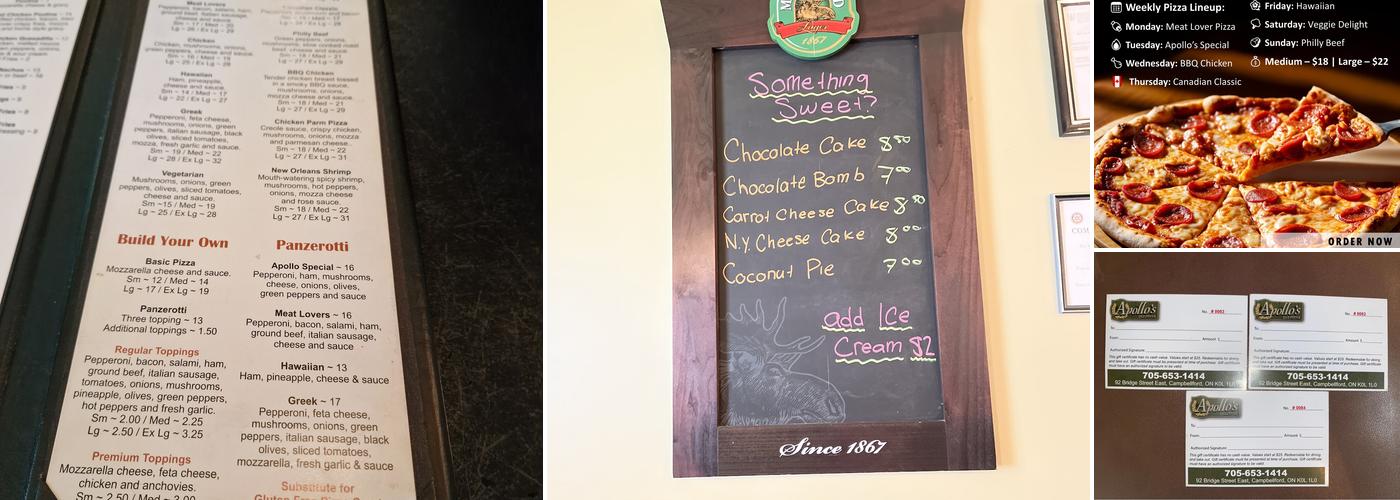 Meat Lovers
Pepperoni, bacon, salami, ham,
ground beef, italian sausage,
cheese and sauce.
Sm ~ 17 / Med ~ 20
Lg ~ 26 / Ex Lg ~ 29
Chicken
Chicken, mushrooms, onions,
green peppers, cheese and sauce.
Sm ~ 16 / Med ~ 19
Lg ~ 25 / Ex Lg ~ 28
Hawaiian
Ham, pineapple,
cheese and sauce.
Sm ~ 14 / Med ~ 17
Lg ~ 22 / Ex Lg ~ 27
Greek
Pepperoni, feta cheese,
mushrooms, onions, green
peppers, italian sausage, black
olives, sliced tomatoes,
mozza, fresh garlic and sauce.
Sm ~ 19 / Med ~ 22
Lg ~ 28 / Ex Lg ~ 32
Vegetarian
Mushrooms, onions, green
peppers, olives, sliced tomatoes,
cheese and sauce.
Sm ~15 / Med ~ 19
Lg ~ 25 / Ex Lg ~ 28
Build Your Own
Basic Pizza
Mozzarella cheese and sauce.
Sm ~ 12 / Med ~ 14
Lg ~ 17 / Ex Lg ~ 19
Panzerotti
Three topping ~ 13
Additional toppings ~ 1.50
Regular Toppings
Pepperoni, bacon, salami, ham,
ground beef, italian sausage,
tomatoes, onions, mushrooms,
pineapple, olives, green peppers,
hot peppers and fresh garlic.
Sm ~ 2.00 / Med ~ 2.25
Lg ~ 2.50 / Ex Lg ~ 3.25
Premium Toppings
Mozzarella cheese, feta cheese,
chicken and anchovies.
Sm ~ 2.50 / Med ~ 3.00
Philly Beef
BBQ Chicken
Tender chicken breast tossed
in a smoky BBQ sauce,
mushrooms, onions,
mozza cheese and sauce.
Sm ~ 18 / Med ~ 21
Lg ~ 27 / Ex Lg ~ 29
Chicken Parm Pizza
Creole sauce, crispy chicken,
mushrooms, onions, mozza
and parmesan cheese.
Sm ~ 18 / Med ~ 22
Lg ~ 27 / Ex Lg ~ 31
New Orleans Shrimp
Mouth-watering spicy shrimp,
mushrooms, hot peppers,
onions, mozza cheese
and rose sauce.
Sm ~ 18 / Med ~ 22
Lg ~ 27 / Ex Lg ~ 31
Panzerotti
Apollo Special ~ 16
Pepperoni, ham, mushrooms,
cheese, onions, olives,
green peppers and sauce
Meat Lovers ~ 16
Pepperoni, bacon, salami, ham,
ground beef, italian sausage,
cheese and sauce
Hawaiian ~ 13
Ham, pineapple, cheese & sauce
Greek ~ 17
Pepperoni, feta cheese,
mushrooms, onions, green
peppers, italian sausage, black
olives, sliced tomatoes,
mozzarella, fresh garlic & sauce
Substitute for
Lager
1867
Something
Sweet?
Chocolate Cake 8.50
Chocolate Bomb 7.00
Carrot Cheese Cake 8.50
N.Y. Cheese Cake 8.00
Coconut Pie 7.00
add Ice
Cream $2
Since 1867
Weekly Pizza Lineup:
Monday: Meat Lover Pizza
Tuesday: Apollo's Special
Wednesday: BBQ Chicken
Thursday: Canadian Classic
Friday: Hawaiian
Saturday: Veggie Delight
Sunday: Philly Beef
Medium – $18 | Large – $22
ORDER NOW
Apollo's
No. # 0082
To:
From: Amount $
Authorized Signature:
705-653-1414
92 Bridge Street East, Campbellford, ON K0L 1L0
Apollo's
No. # 0083
To:
From: Amount $
Authorized Signature:
705-653-1414
92 Bridge Street East, Campbellford, ON K0L 1L0
Apollo's
No. # 0084
To:
From: Amount $
Authorized Signature:
705-653-1414
92 Bridge Street East, Campbellford, ON K0L 1L0